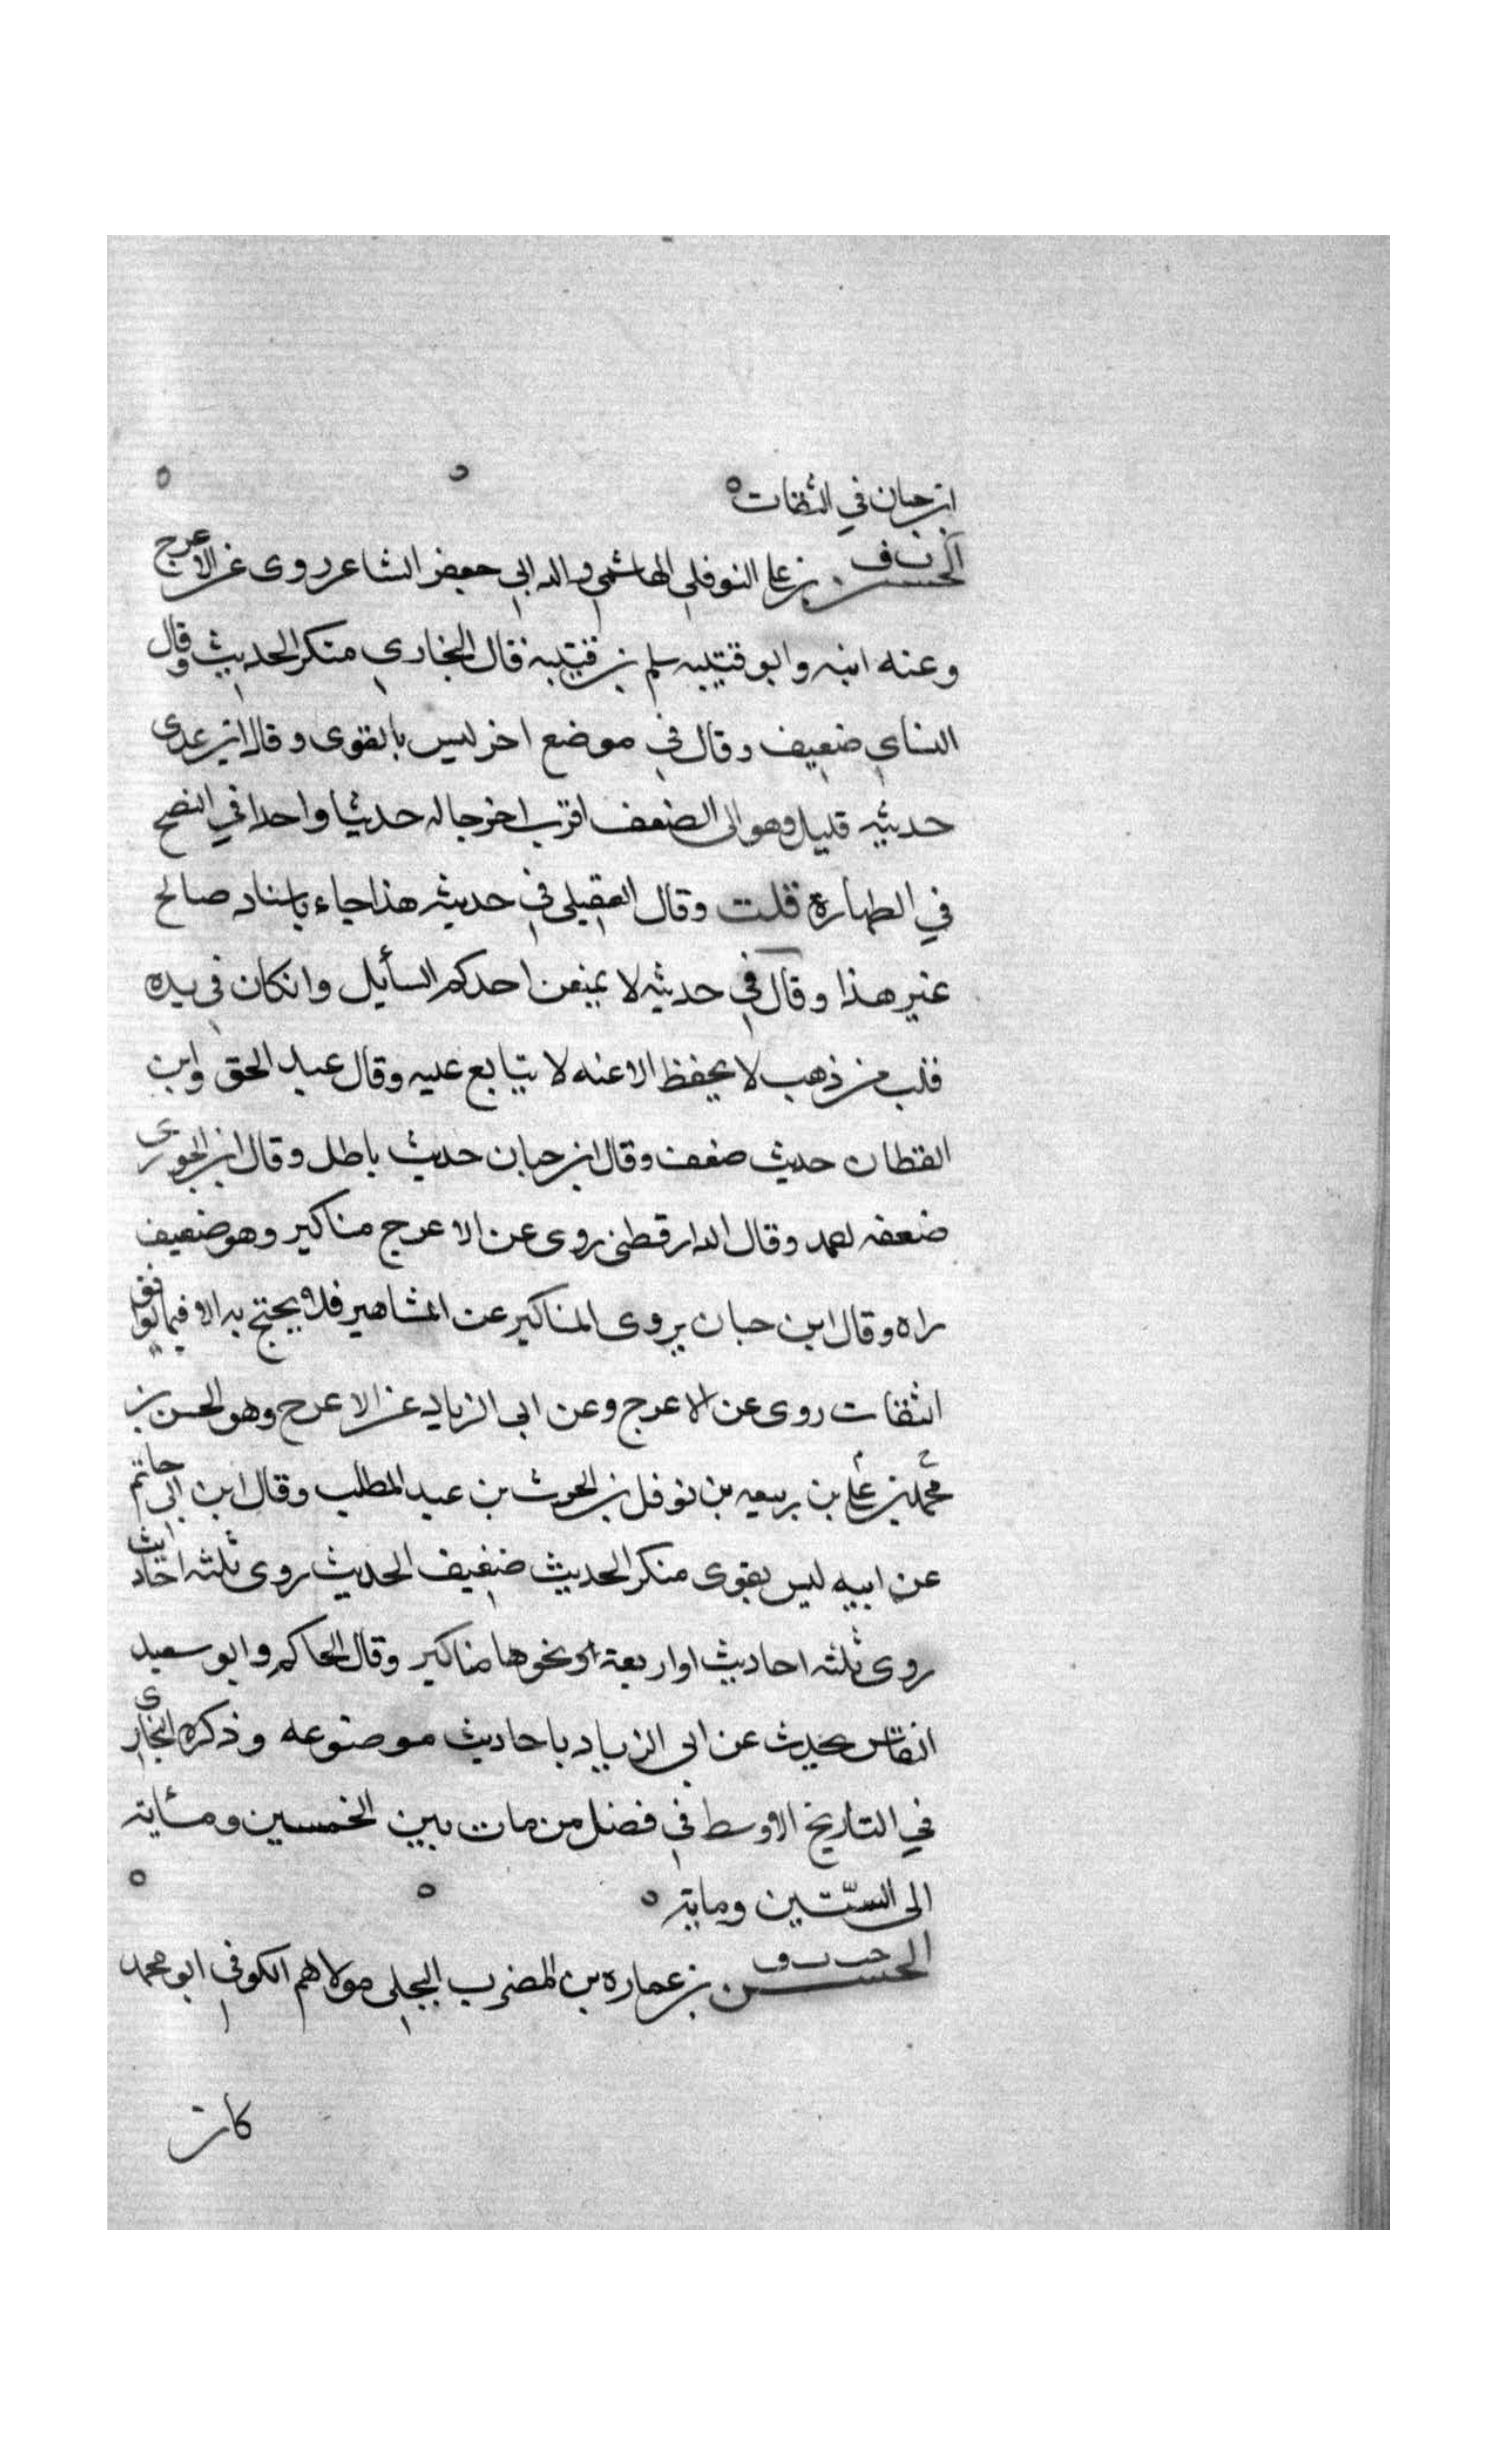 ابن حبان في الثقات
الحسن بن علي النوفلي الهاشمي والد ابي جعفر الشاعر روى عن الاعرج
وعنه ابنه وابو قتيبه سلم بن قتيبة قال البخاري منكر الحديث وقال
النساي ضعيف وقال في موضع اخر ليس بالقوى وقال ابن عدى
حديثه قليل وهو الى الضعف اقرب اخرجا له حديثا واحدا في النضح
في الطهارة قلت وقال العقيلي في حديثه هذا جاء باسناد صالح
غير هذا وقال في حديثه لا يمنعن احدكم السأيل وانكان في يده
قلب من ذهب لا يحفظ الا عنه لا يتابع عليه وقال عبد الحق وابن
القطان حديث ضعف وقال ابن حبان حديث باطل وقال ابن الجوزى
ضعفه احمد وقال الدارقطني روى عن الاعرج مناكير وهو ضعيف
راه وقال ابن حبان يروى المناكير عن المشاهير فلا يحتج به الا فيما يوافق
الثقات روى عن الاعرج وعن ابى الزناد عن الاعرج وهو الحسن بن
محمد بن علي بن ربيعه بن نوفل بن الحرث بن عبد المطلب وقال ابن ابى حاتم
عن ابيه ليس بقوى منكر الحديث ضعيف الحديث روى ثلثه احاديث
روى ثلثه احاديث او اربعة او نحوها مناكير وقال الحاكم وابو سعيد
النقاش يحدث عن ابى الزناد باحاديث موضوعه وذكره البخارى
في التاريخ الاوسط في فضل من مات بين الخمسين ومئاية
الى الستّين وماية
الحسن بن عماره بن المضرب البجلى مولاهم الكوفي ابو محمد
كان